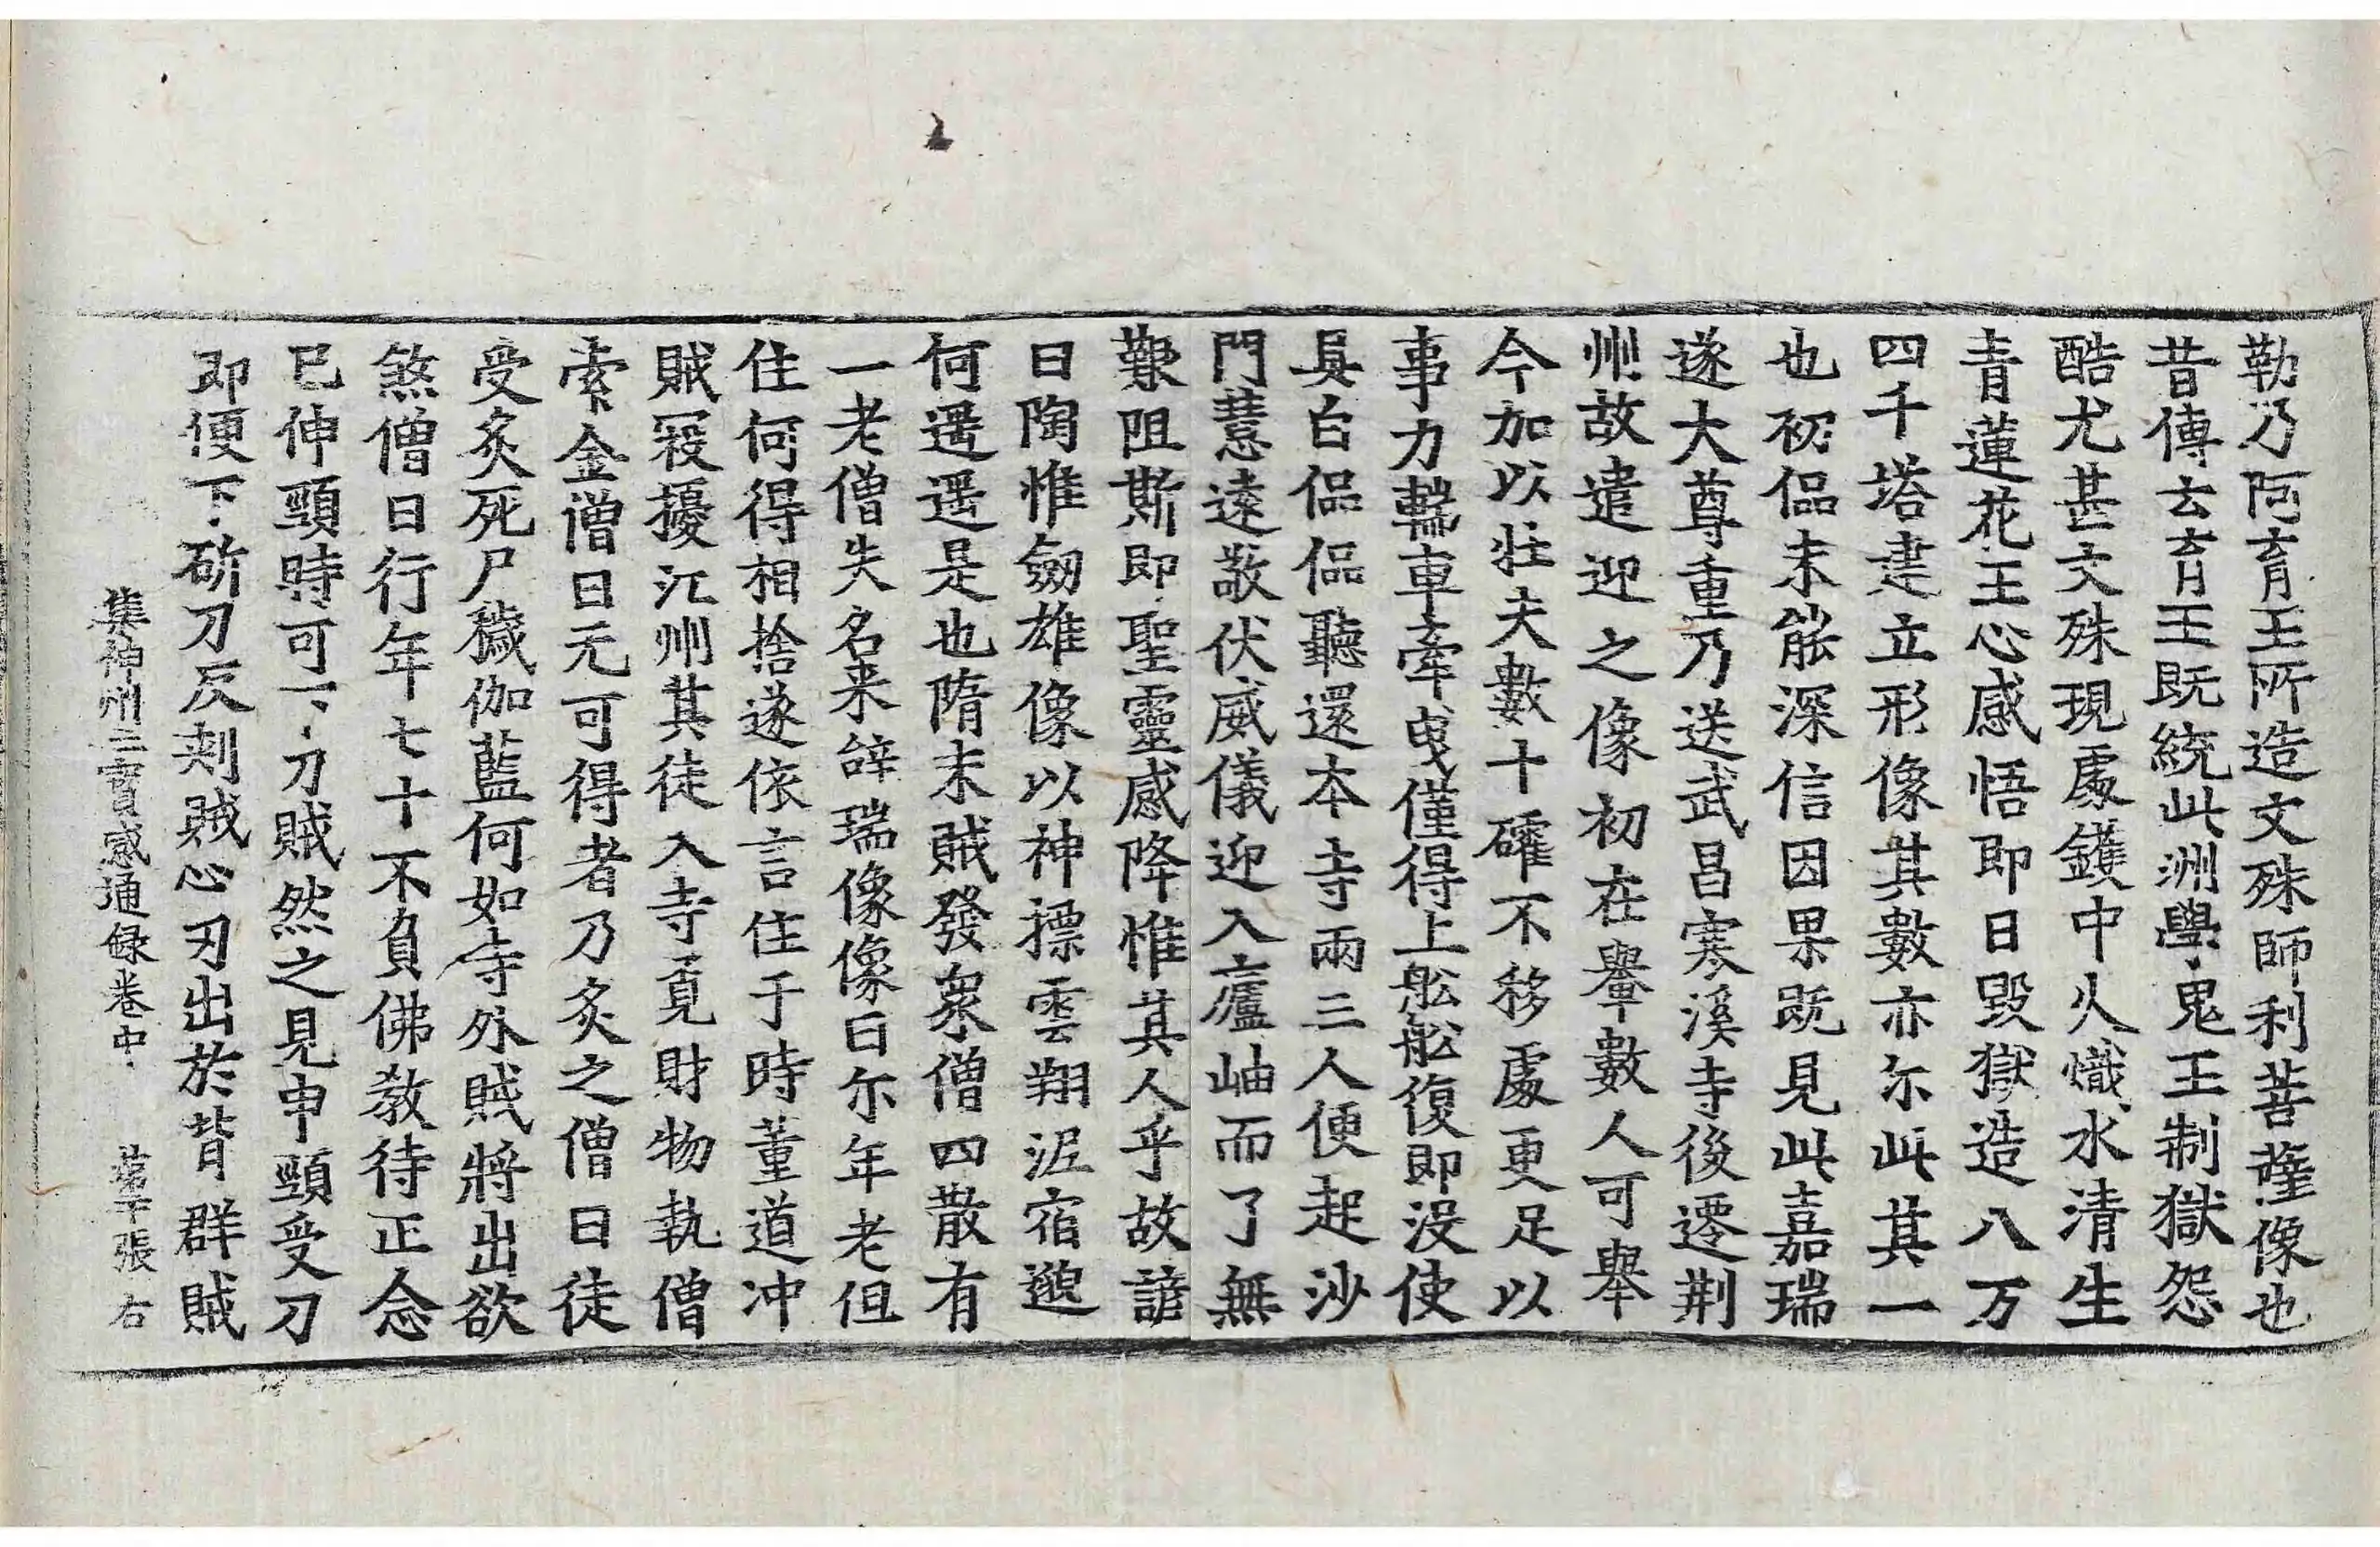 勒乃阿育王所造文殊師利菩薩像也
昔傳云育王既統此洲學鬼王制獄怨
酷尤甚文殊現處鑊中火熾水清生
青蓮花王心感悟即日毀獄造八万
四千塔建立形像其數亦尒此其一
也初偘未能深信因果既見此嘉瑞
遂大尊重乃送武昌寒溪寺後遷荆
州故遣迎之像初在轝數人可舉
今加以壯夫數十確不移處更足以
事力輲車牽曳僅得上舩舩復即没使
具白偘偘聽還本寺兩三人便起沙
門慧遠敬伏威儀迎入廬岫而了無
艱阻斯即聖靈感降惟其人乎故諺
曰陶惟劒雄像以神摽雲翔泥宿邈
何遥遥是也隋末賊發衆僧四散有
一老僧失名来辝瑞像像曰尒年老但
住何得相捨遂依言住于時董道冲
賊寇擾江州其徒入寺覓財物執僧
索金僧曰元可得者乃炙之僧曰徒
受炙死尸穢伽藍何如寺外賊將出欲
煞僧曰行年七十不負佛教待正念
已伸頸時可下刀賊然之見申頸受刀
即便下斫刀反刾賊心刃出於背群賊
集神州三寳感通録卷中 第十張 右